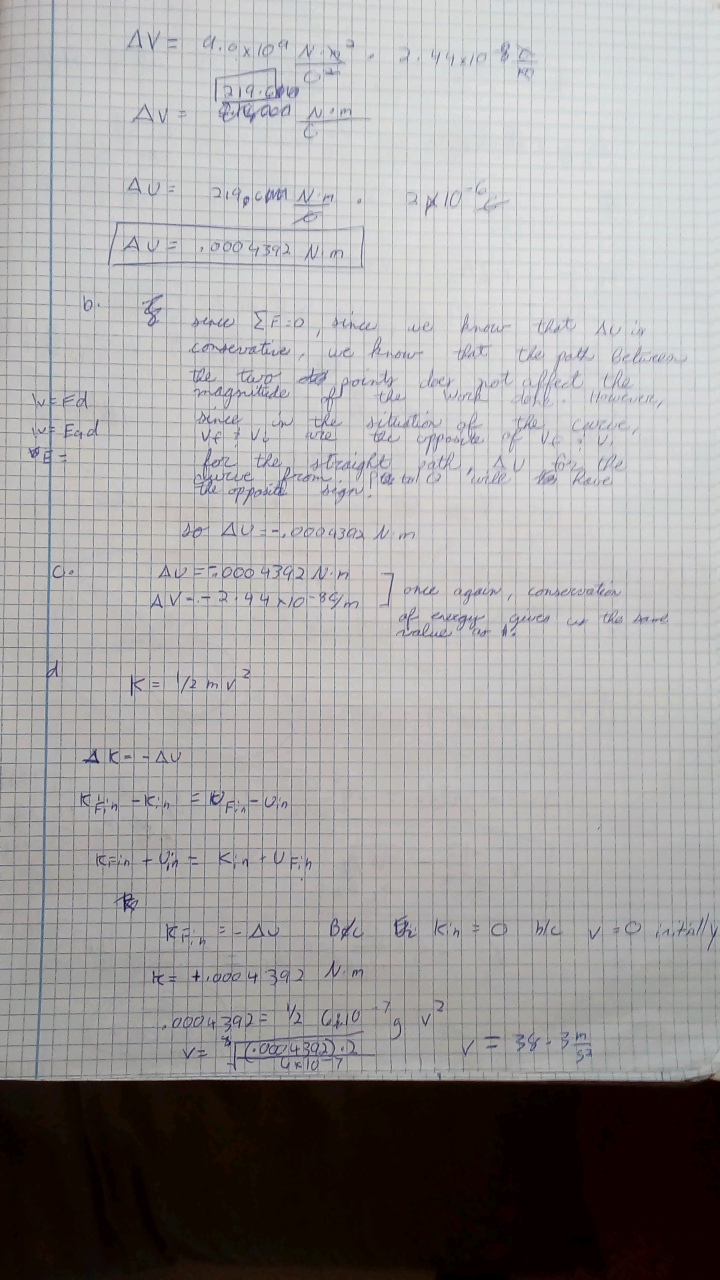 ΔV = 9.0×10⁹ N·m²/C² · 2.44×10⁻⁸ C/m
219.6
ΔV = N·m/C
ΔU = 219. N·m/C · 2×10⁻⁶ C
ΔU = .0004392 N·m
b. since ΣF=0, since we know that ΔU is
conservative, we know that the path between
the two points does not affect the
magnitude of the work done. However,
W=Fd
since in the situation of the curve,
W=Eqd
Vf & Vi are the opposite of Vf & Vi
E =
for the straight path, ΔU for the
curve from to will have
the opposite sign.
so ΔU = -.0004392 N·m
c. ΔU = -.0004392 N·m
ΔV = -2.44×10⁻⁸ C/m
once again, conservation
of energy gives us the same
value as
d
K = 1/2 m v²
ΔK = -ΔU
KFin - Kin = UFin - Uin
KFin + Uin = Kin + UFin
KFin = -ΔU B/c Kin = 0 b/c v = 0 initially
K = +.0004392 N·m
.0004392 = 1/2 6×10⁻⁷ g v²
v = √(.0004392)·2 / 10⁻⁷
v = 38.3 m/s²